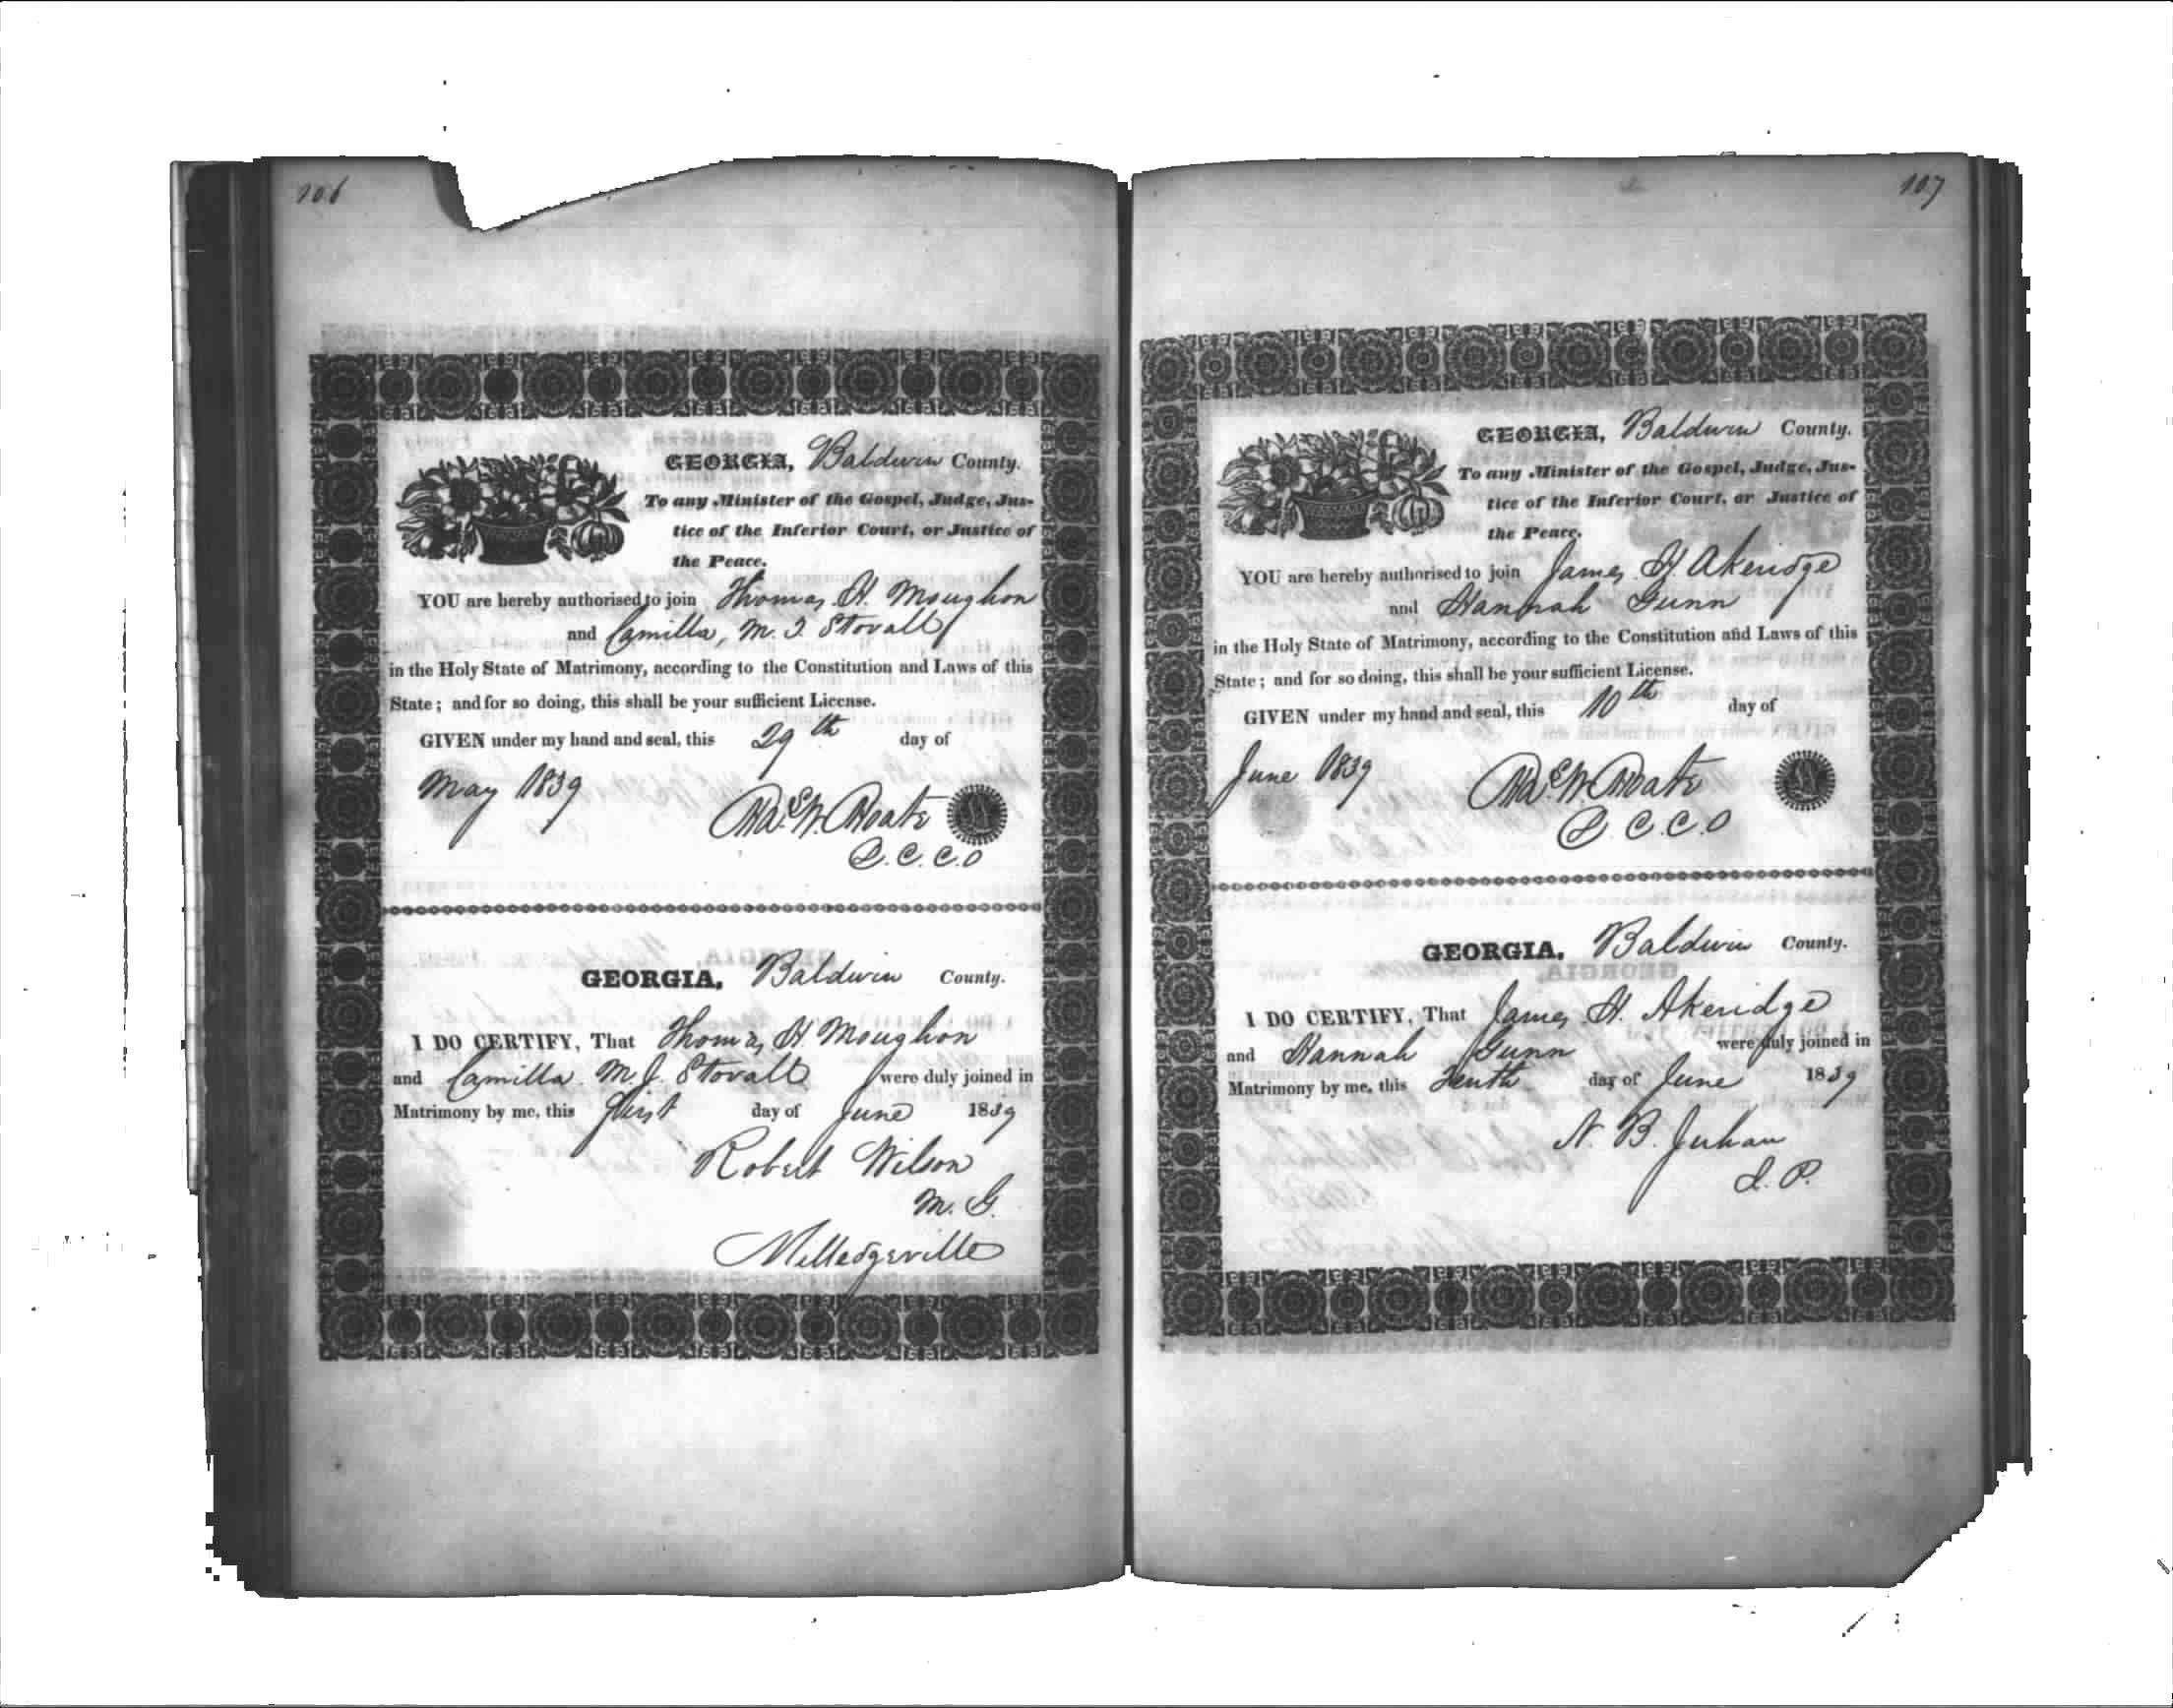 106
GEORGIA, Baldwin County.
To any Minister of the Gospel, Judge, Jus-
tice of the Inferior Court, or Justice of
the Peace.
YOU are hereby authorised to join Thomas H. Moughon
and Camilla, M. J. Stovall
in the Holy State of Matrimony, according to the Constitution and Laws of this
State; and for so doing, this shall be your sufficient License.
GIVEN under my hand and seal, this 29th day of
May 1839
C. C. O
GEORGIA, Baldwin County.
I DO CERTIFY, That Thomas H Moughon
and Camilla M. J. Stovall were duly joined in
Matrimony by me, this first day of June 1839
Robert Wilson
M. G.
Milledgeville
107
GEORGIA, Baldwin County.
To any Minister of the Gospel, Judge, Jus-
tice of the Inferior Court, or Justice of
the Peace.
YOU are hereby authorised to join James H Akeridge
and Hannah Gunn
in the Holy State of Matrimony, according to the Constitution and Laws of this
State; and for so doing, this shall be your sufficient License.
GIVEN under my hand and seal, this 10th day of
June 1839
C. C. O
GEORGIA, Baldwin County.
I DO CERTIFY, That James H. Akeridge
and Hannah Gunn were duly joined in
Matrimony by me, this Tenth day of June 1839
N. B. Juhan
J. P.